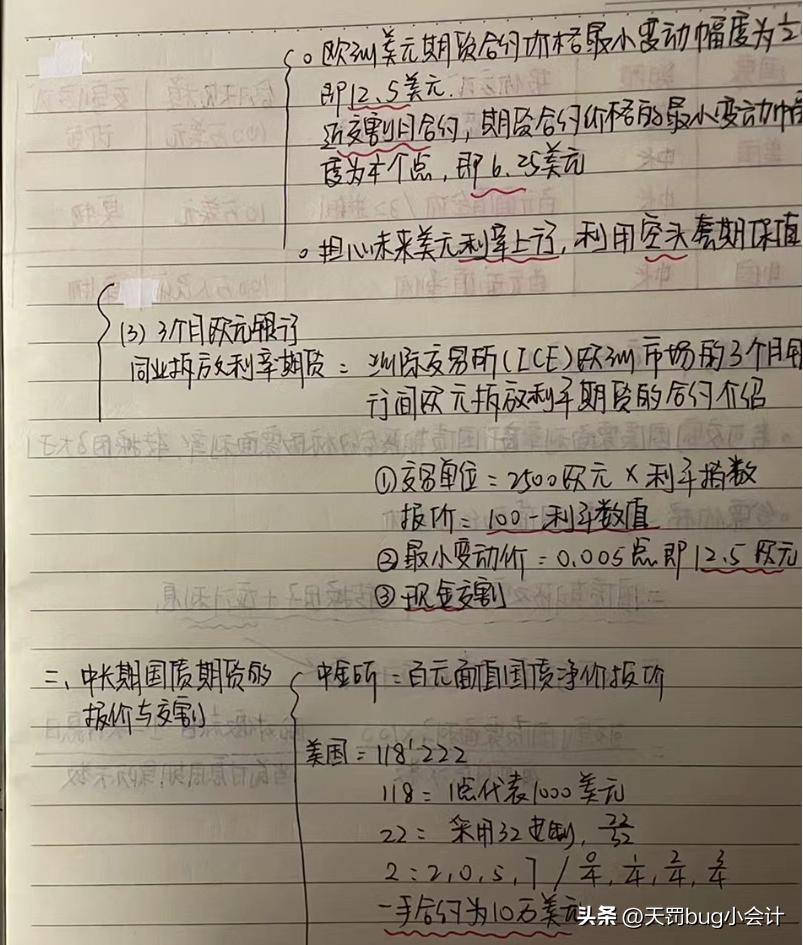 欧洲美元期货合约价格最小变动幅度为1/2
即12.5美元.
近交割月合约，期货合约价格的最小变动幅
度为1/4个点，即6.25美元
担心未来美元利率上行，利用空头套期保值
(3) 3个月欧元银行
同业拆放利率期货 =
洲际交易所(ICE)欧洲市场的3个月银
行间欧元拆放利率期货的合约介绍
①交易单位 = 2500欧元 × 利率指数
报价 = 100 - 利率数值
②最小变动价 = 0.005点即12.5欧元
③现金交割
二、中长期国债期货的
报价与交割
中金所 = 百元面值国债净价报价
美国 = 118'222
118 = 1点代表1000美元
22 = 采用32进制, 22/32
2 = 2, 0, 5, 7 / 0/4, 1/4, 2/4, 3/4
一手合约为10万美元
头条 @天罚bug小会计